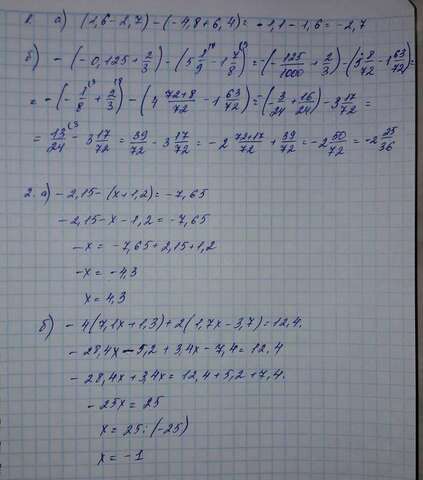 1. а) (1,6-2,7)-(-4,8+6,4)= -1,1-1,6=-2,7
б) -(-0,125+2/3)-(5 8/9-1 7/8)=-(-125/1000+2/3)-(5 8/72-1 63/72)=
= -(-1/8+2/3)-(4 72+8/72-1 63/72)=-(-3/24+16/24)-3 17/72=
= 13/24-3 17/72=39/72-3 17/72=-2 72+17/72+39/72=-2 50/72=-2 25/36
2. а) -2,15-(x+1,2)=-7,65
-2,15-x-1,2=-7,65
-x= -7,65+2,15+1,2
-x= -4,3
x= 4,3
б) -4(7,1x+1,3)+2(1,7x-3,7)=12,4.
-28,4x-5,2+3,4x-7,4=12,4
-28,4x+3,4x=12,4+5,2+7,4.
-25x=25
x=25:(-25)
x=-1